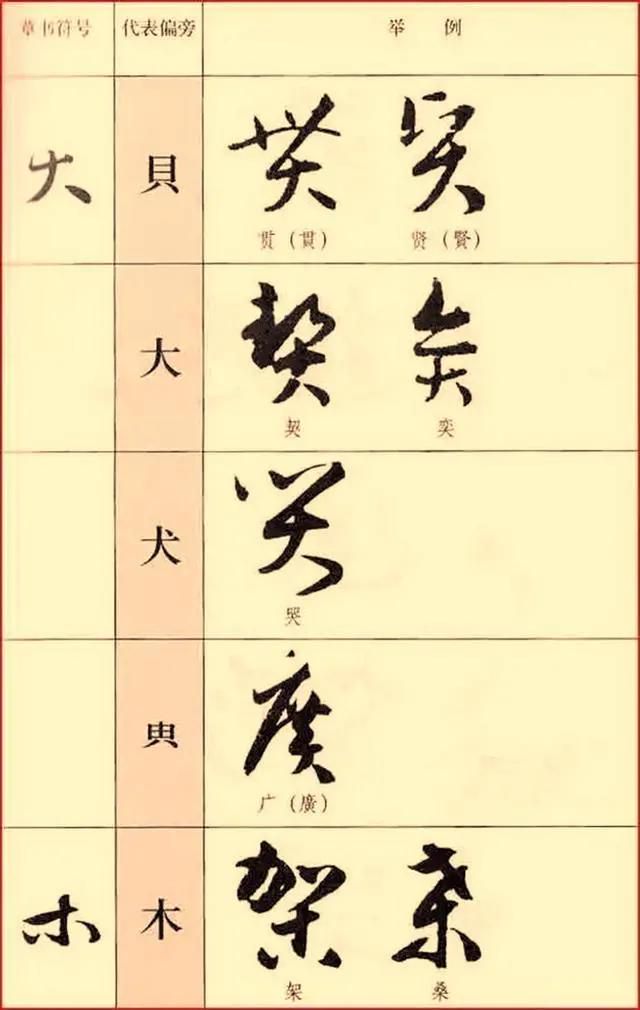 草书符号 代表偏旁 举例
貝
贯（貫） 贤（賢）
大
契 奕
犬
哭
广（廣）
木
架 桑